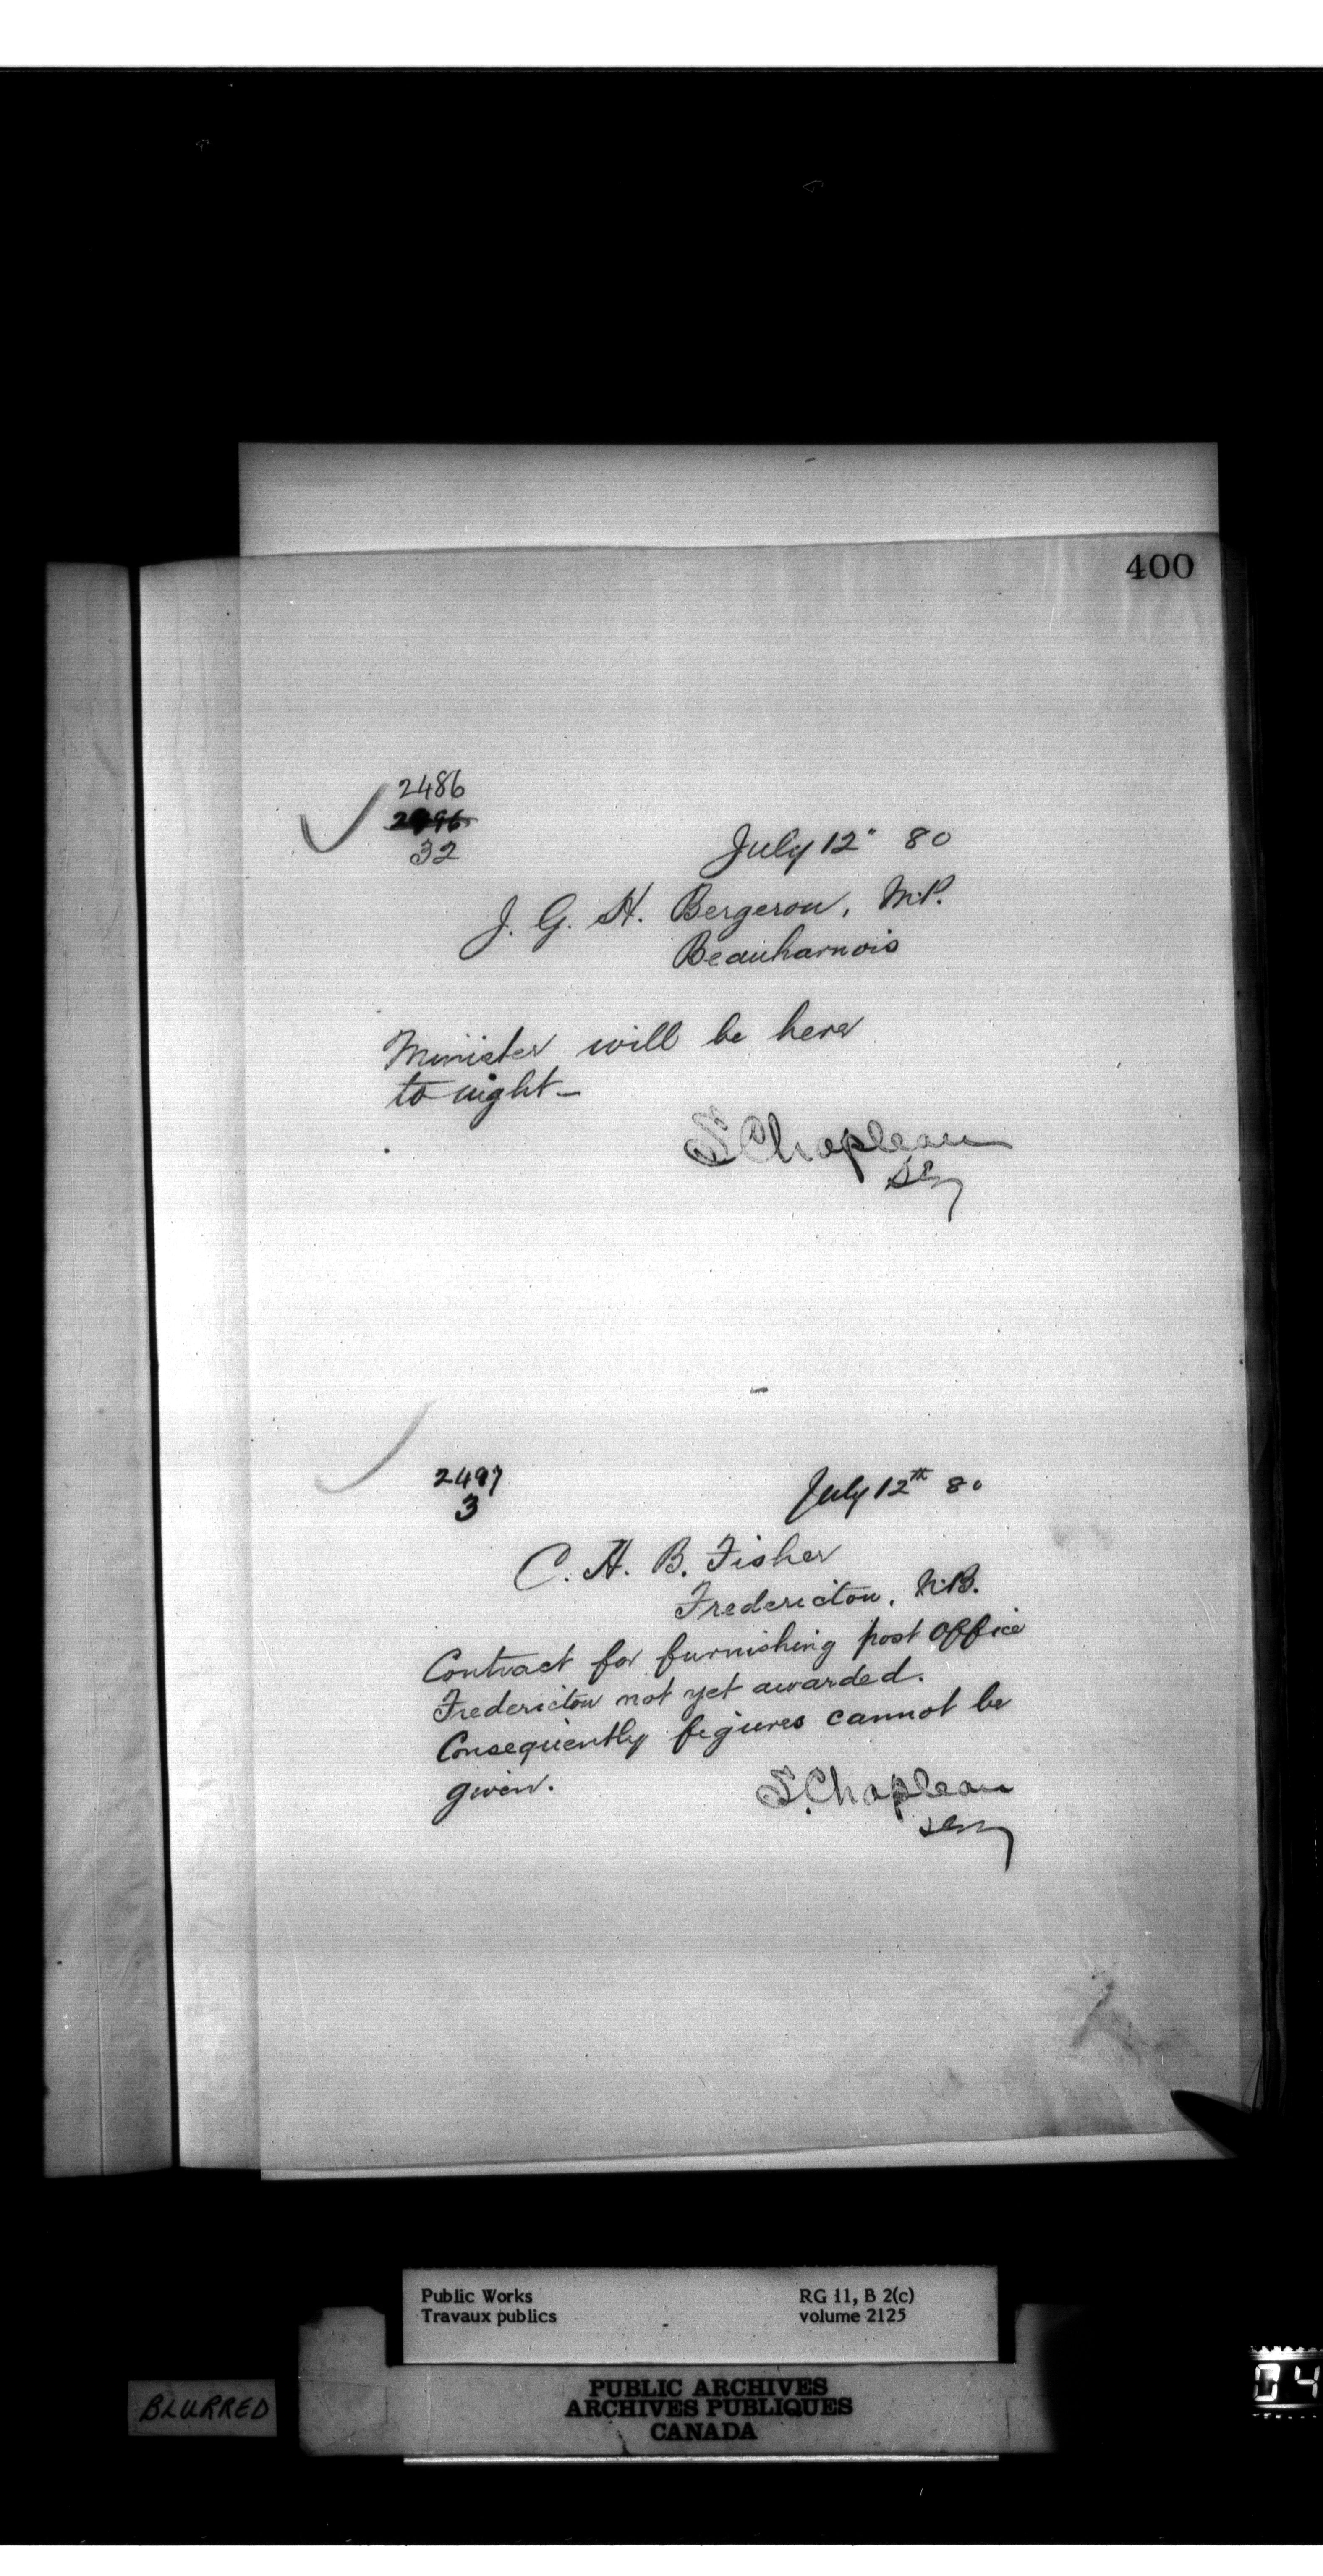 400
2486
2496
32
July 12" 80
J. G. H. Bergeron, M.P.
Beauharnois
Minister will be here
to night —
S Chapleau
Sey
2497
3
July 12th 80
C. H. B. Fisher
Fredericton, N.B.
Contract for furnishing post office
Fredericton not yet awarded.
Consequently figures cannot be
given.
S. Chapleau
Sey
Public Works
Travaux publics
RG 11, B 2(c)
volume 2125
BLURRED
PUBLIC ARCHIVES
ARCHIVES PUBLIQUES
CANADA
04